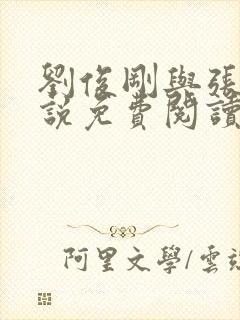 劉俊剛與張
說免費閱讀
阿里文學/雲